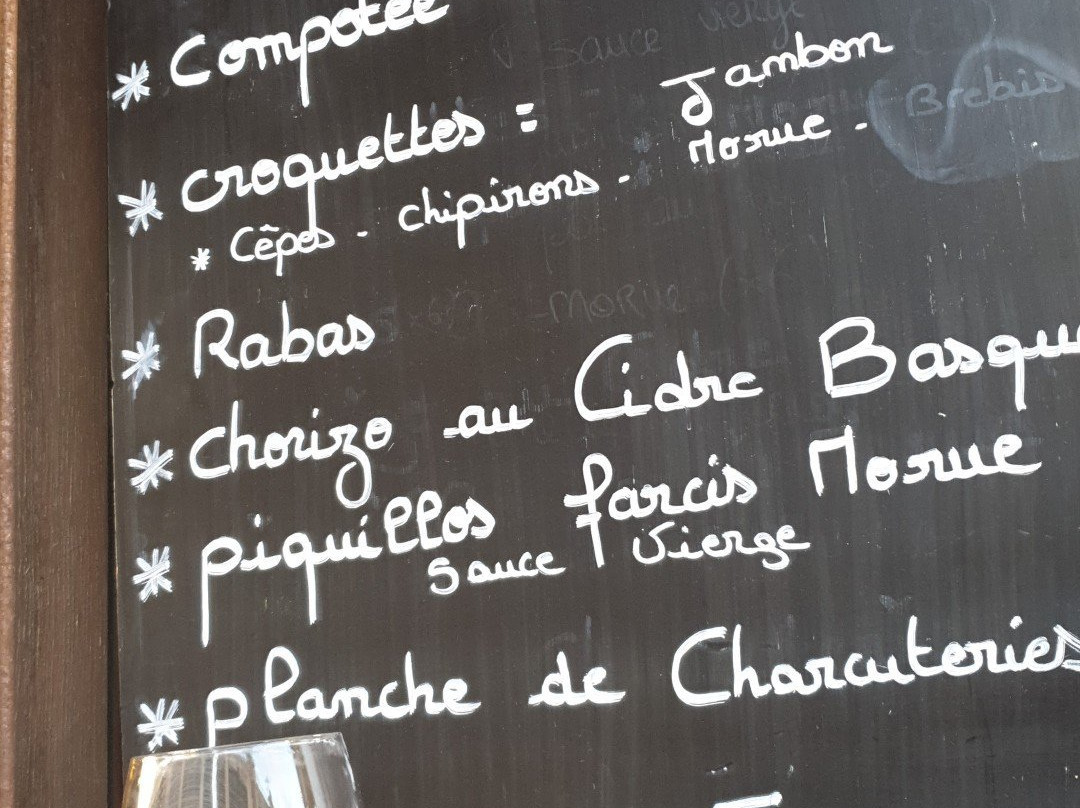 * Compotée
* croquettes = Jambon
* Cêpes - chipirons - Morue - Brebis
* Rabas
* Chorizo au Cidre Basqu
* piquillos farcis Morue
Sauce Vierge
* planche de Charcuteries